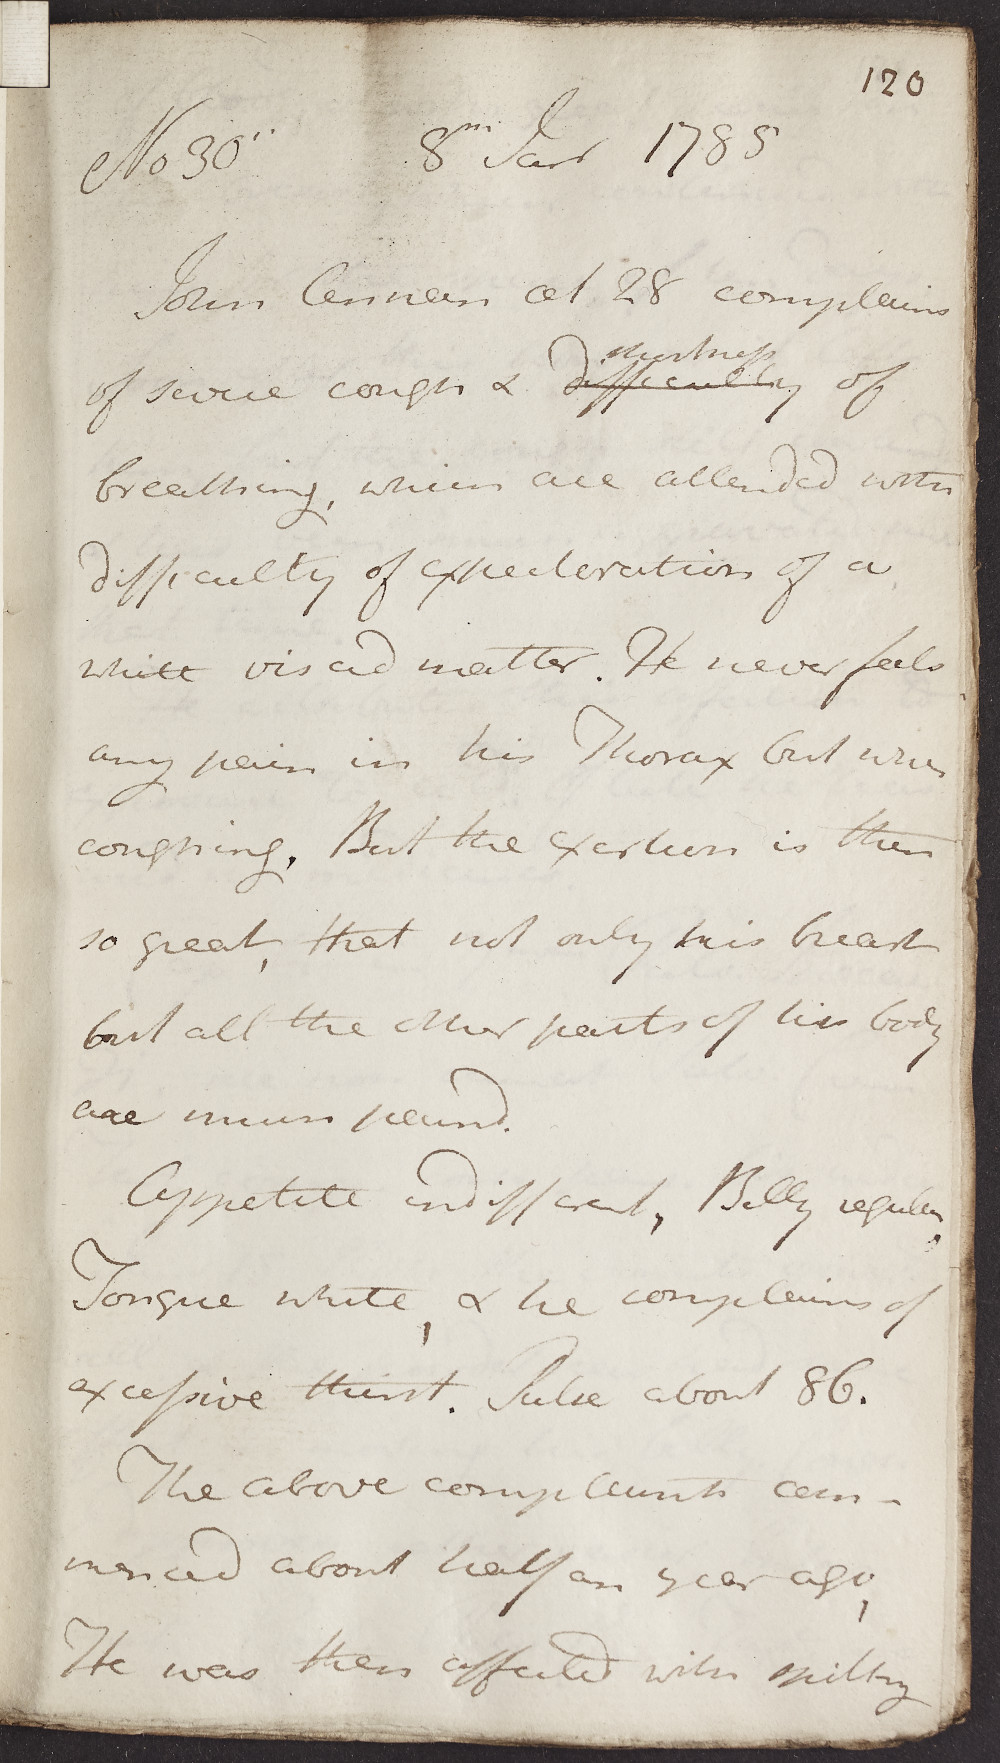 120
No 30 8th Janr 1785
John Cannan æt 28 complains
of severe cough & difficulty shortness of
breathing, which are attended with
difficulty of expectoration of a
white viscid matter. He never feels
any pain in his Thorax but when
coughing. But the exertion is then
so great, that not only his breast
but all the other parts of his body
are much pained.
Appetite indifferent, Belly regular,
Tongue white, & he complains of
excessive thirst. Pulse about 86.
The above complaints com-
menced about half an year ago,
He was then affected with spitting